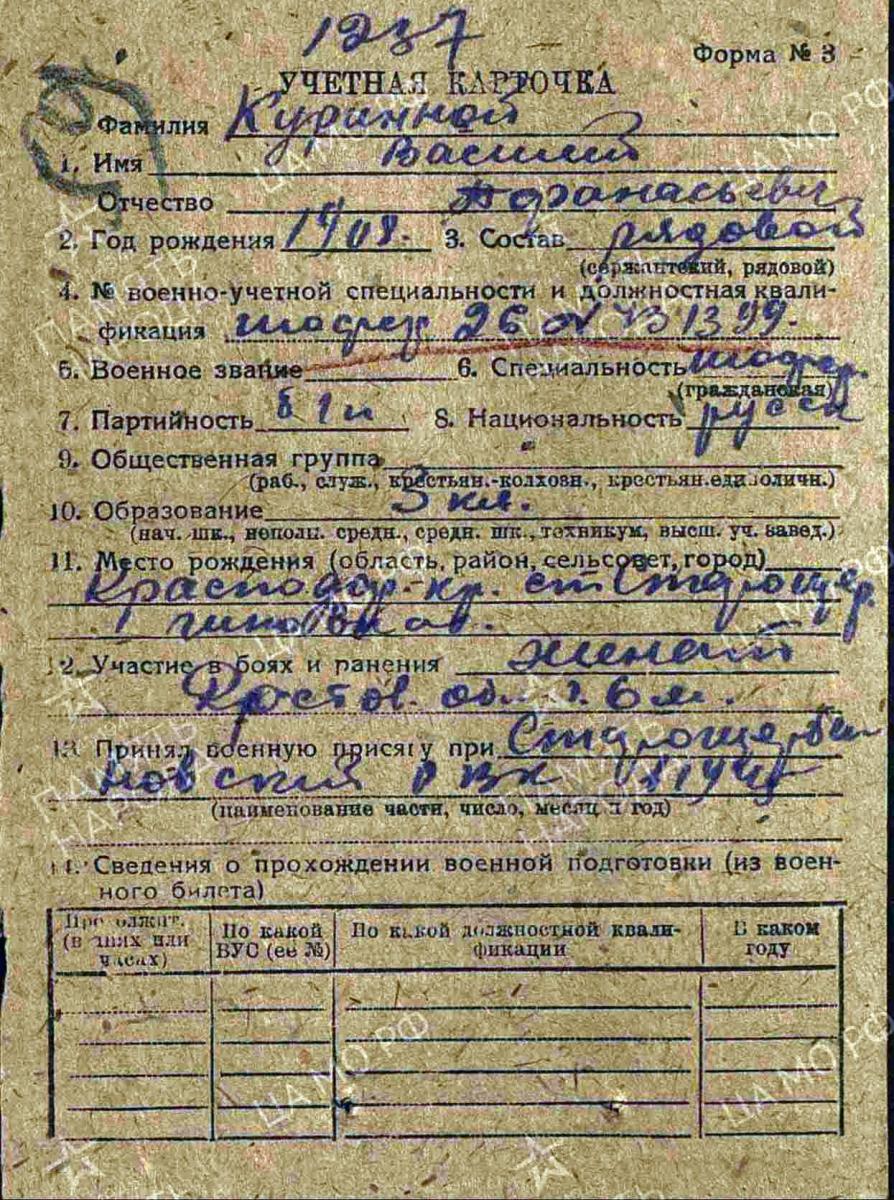 1237
Форма № 3
УЧЕТНАЯ КАРТОЧКА
Фамилия Куринной
1. Имя Василий
Отчество Афанасьевич
2. Год рождения 1908. 3. Состав рядовой
(сержантский, рядовой)
4. № военно-учетной специальности и должностная квали-
фикация шофер 26
5. Военное звание 6. Специальность шофер.
(гражданская)
7. Партийность б/п 8. Национальность русск
9. Общественная группа
(раб., служ., крестьян.-колхозн., крестьян.единоличн.)
10. Образование 3 кл.
(нач. шк., неполн. средн., средн. шк., техникум, высш. уч. завед.)
11. Место рождения (область, район, сельсовет, город)
Краснодар. кр. ст Старощер.
биновка.
12. Участие в боях и ранения женат
Ростов. обл.
13. Принял военную присягу при Старощерби
новский РВК
(наименование части, число, месяц и год)
14. Сведения о прохождении военной подготовки (из воен-
ного билета)
Продолжит. (в днях или часах) По какой ВУС (ее №) По какой должностной квали-фикации В каком году
ПАМЯТЬ НАРОДА
ЦА МО РФ